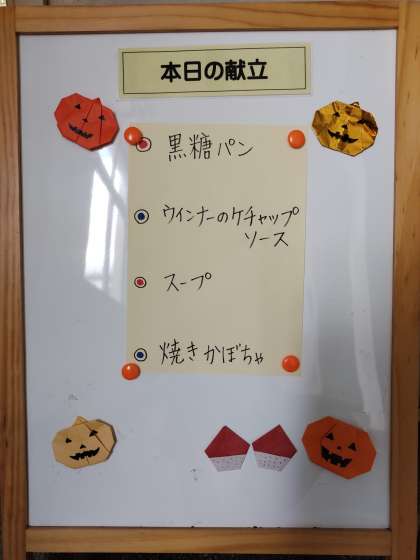 本日の献立
黒糖パン
ウインナーのケチャップ
ソース
スープ
焼きかぼちゃ